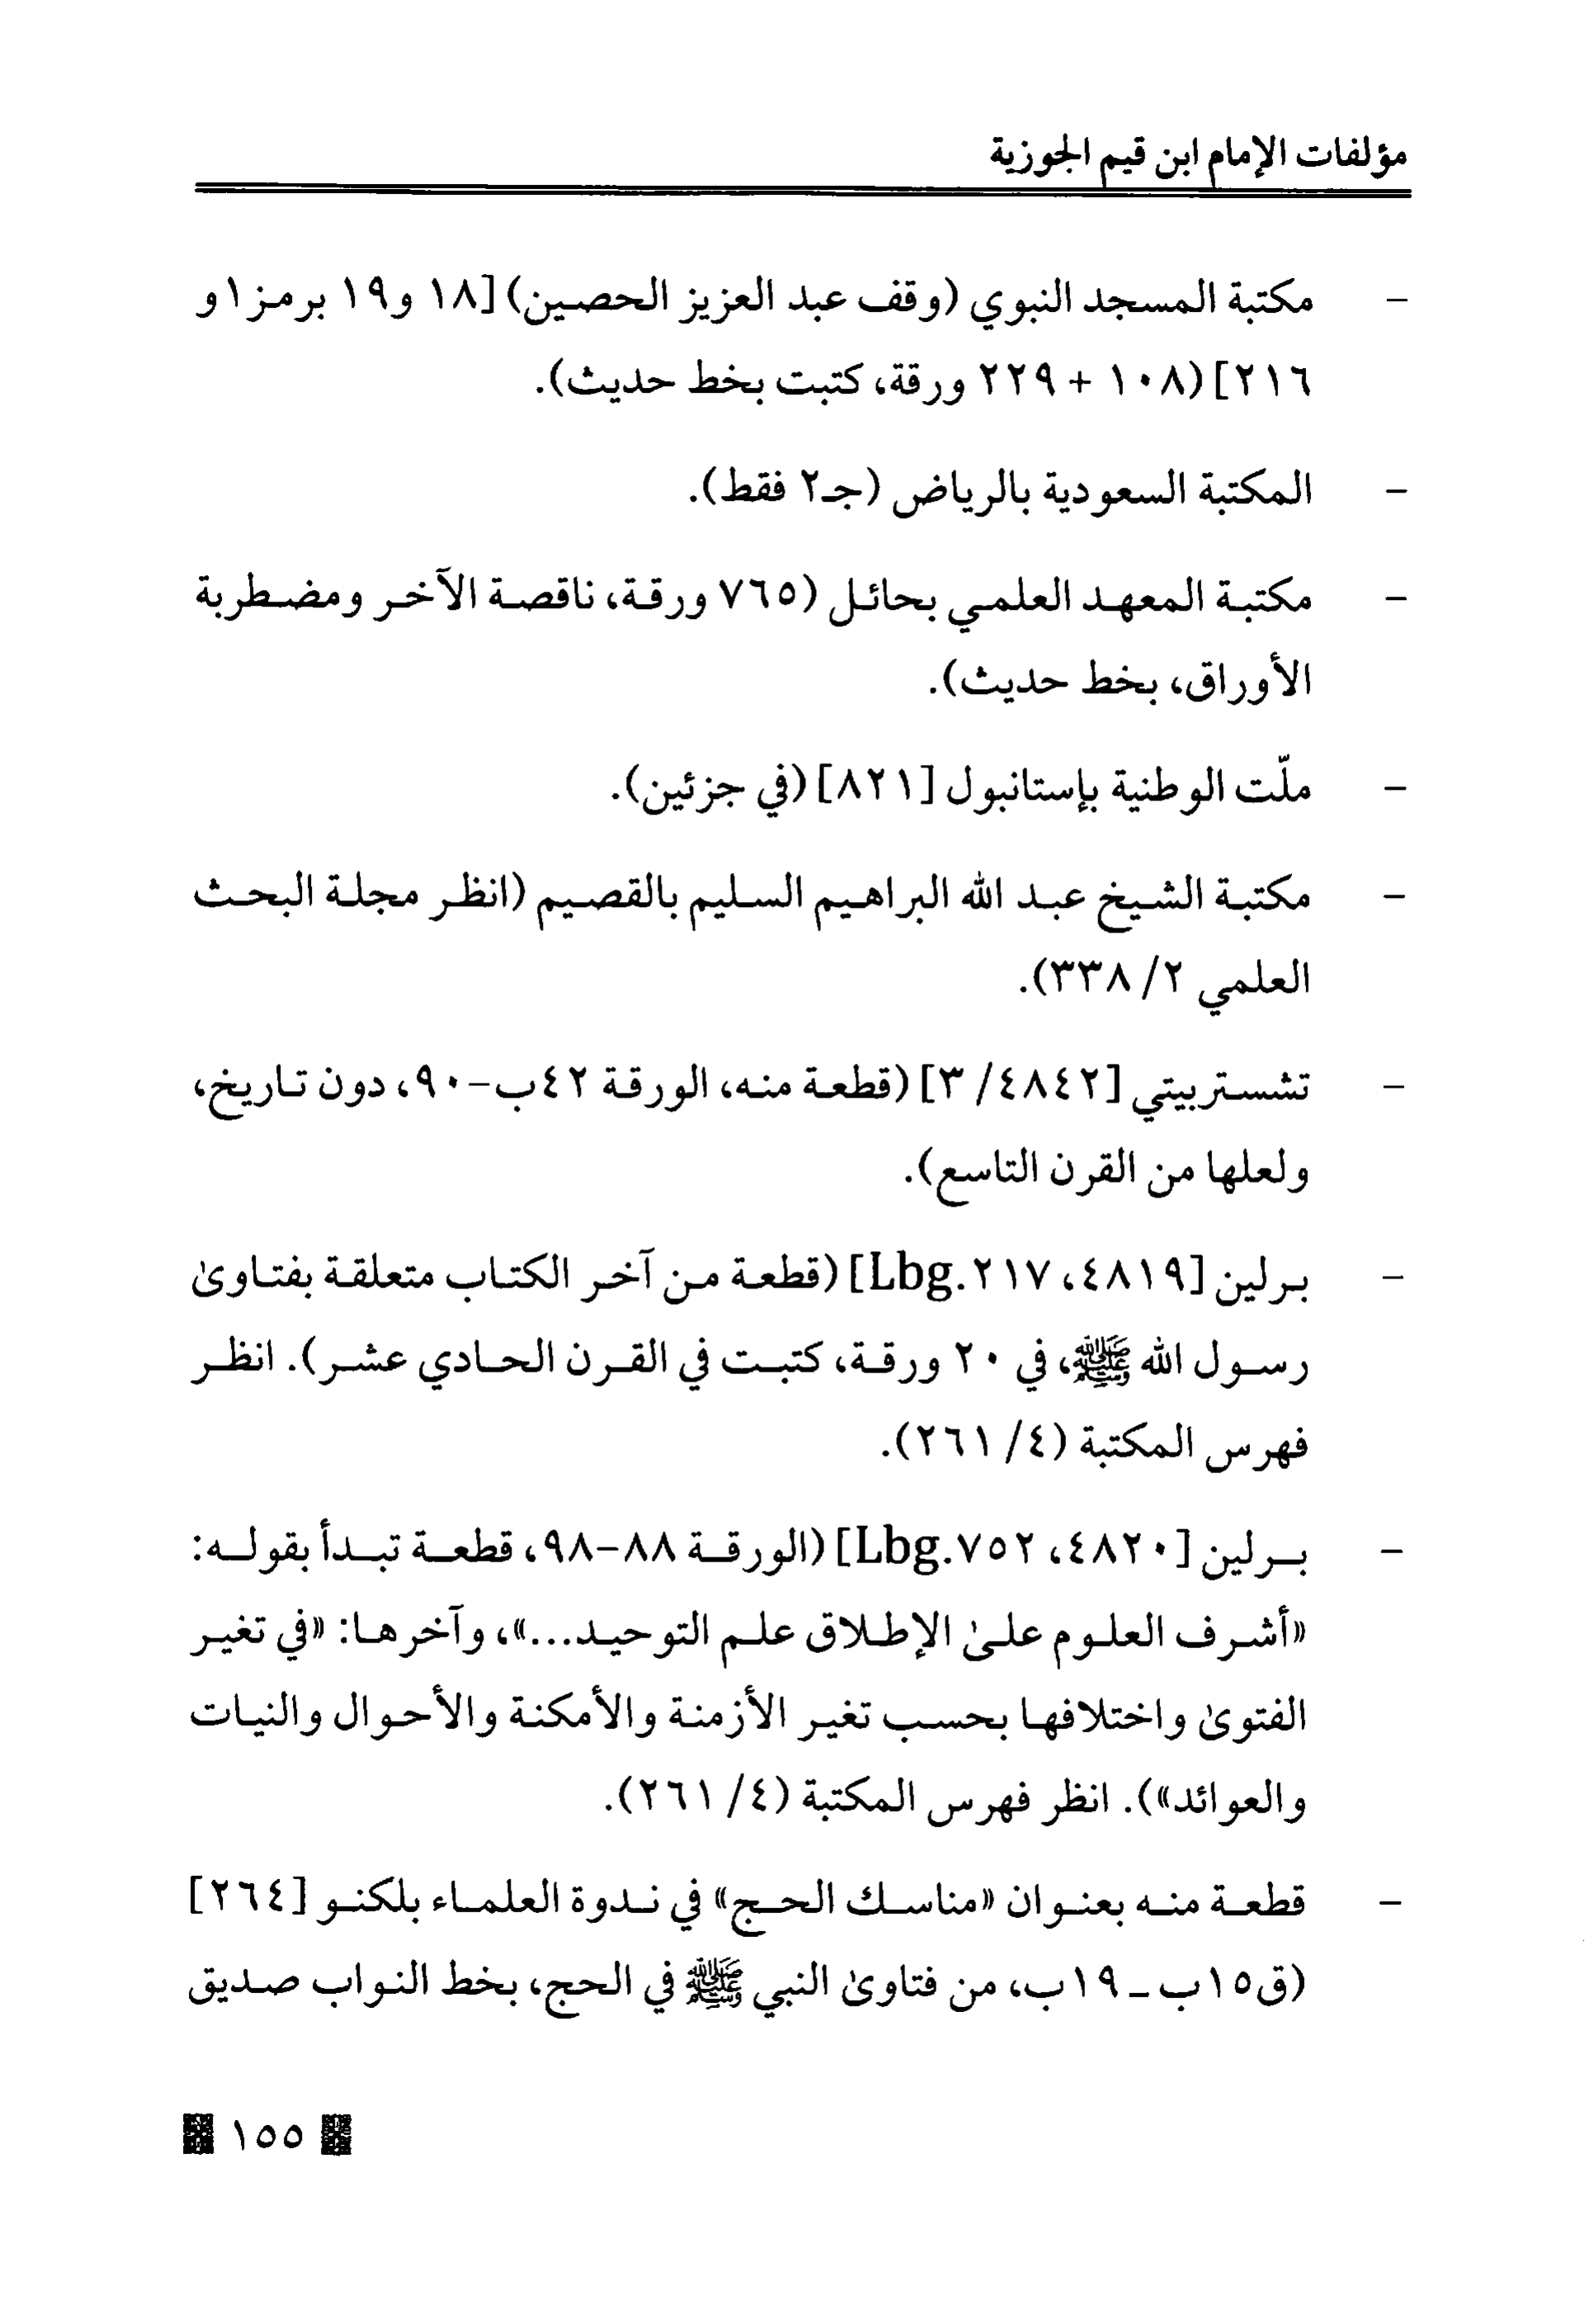 مؤلفات الإمام ابن قيم الجوزية
- مكتبة المسجد النبوي (وقف عبد العزيز الحصين) [١٨ و١٩ برمز ١ و
٢١٦] (١٠٨ + ٢٢٩ ورقة، كتبت بخط حديث).
- المكتبة السعودية بالرياض (جـ٢ فقط).
- مكتبة المعهد العلمي بحائل (٧٦٥ ورقة، ناقصة الآخر ومضطربة
الأوراق، بخط حديث).
- ملّت الوطنية بإستانبول [٨٢١] (في جزئين).
- مكتبة الشيخ عبد الله البراهيم السليم بالقصيم (انظر مجلة البحث
العلمي ٢/ ٣٣٨).
- تشستربيتي [٤٨٤٢/ ٣] (قطعة منه، الورقة ٤٢ب-٩٠، دون تاريخ،
ولعلها من القرن التاسع).
- برلين [٤٨١٩، Lbg.٢١٧] (قطعة من آخر الكتاب متعلقة بفتاوىٰ
رسول الله ﷺ، في ٢٠ ورقة، كتبت في القرن الحادي عشر). انظر
فهرس المكتبة (٤/ ٢٦١).
- برلين [٤٨٢٠، Lbg.٧٥٢] (الورقة ٨٨-٩٨، قطعة تبدأ بقوله:
«أشرف العلوم علىٰ الإطلاق علم التوحيد...»، وآخرها: «في تغير
الفتوىٰ واختلافها بحسب تغير الأزمنة والأمكنة والأحوال والنيات
والعوائد»). انظر فهرس المكتبة (٤/ ٢٦١).
- قطعة منه بعنوان «مناسك الحج» في ندوة العلماء بلكنو [٢٦٤]
(ق١٥ب ـ ١٩ب، من فتاوىٰ النبي ﷺ في الحج، بخط النواب صديق
١٥٥